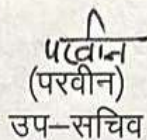 परवीन
(परवीन)
उप–सचिव